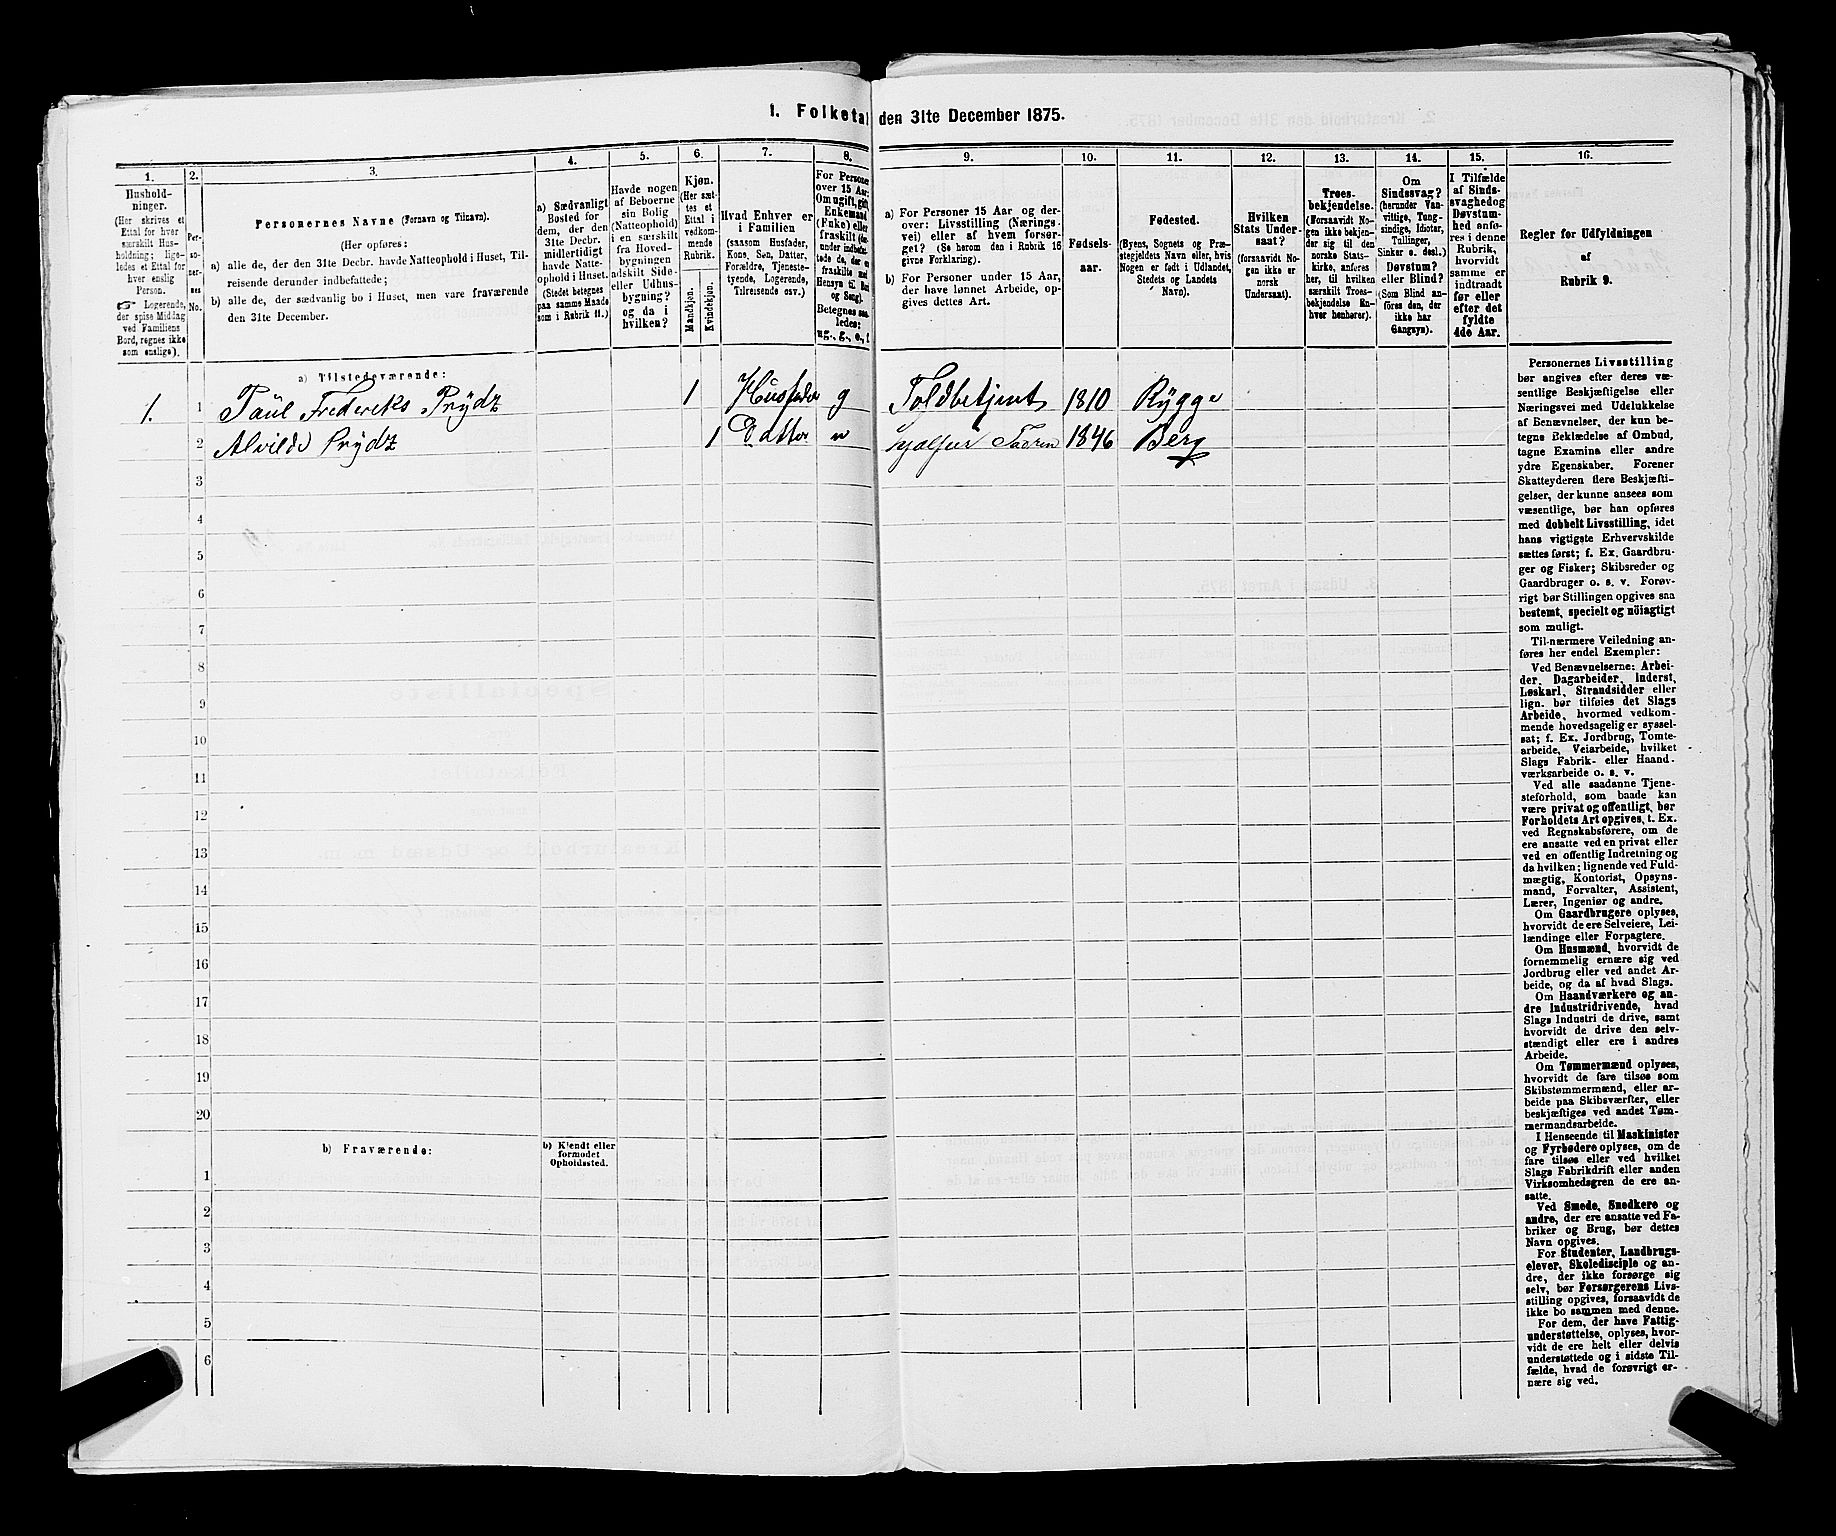 1. Folketal den 31te December 1875.
1.
Hushold-
ninger.
(Her skrives et
Ettal for hver
særskilt Hus-
holdning; lige-
ledes et Ettal for
hver enslig
Person.
☞ Logerende,
der spise Middag
ved Familiens
Bord, regnes ikke
som enslige).
2.
Per-
so-
ner-
nes
No.
3.
Personernes Navne (Fornavn og Tilnavn).
(Her opføres:
a) alle de, der den 31te Decbr. havde Natteophold i Huset, Til-
reisende derunder indbefattede;
b) alle de, der sædvanlig bo i Huset, men vare fraværende
den 31te December.
4.
a) Sædvanligt
Bosted for
dem, der den
31te Decbr.
midlertidigt
havde Natte-
ophold i Huset.
(Stedet betegnes
paa samme Maade
som i Rubrik 11.)
5.
Havde nogen
af Beboerne
sin Bolig
(Natteophold)
i en særskilt
fra Hoved-
bygningen
adskilt Side-
eller Udhus-
bygning?
og da i
hvilken?
6.
Kjøn.
(Her sæt-
tes et
Ettal i
vedkom-
mende
Rubrik.
Mandkjøn.
Kvindekjøn.
7.
Hvad Enhver er
i Familien
(saasom Husfader,
Kone, Søn, Datter,
Forældre, Tjeneste-
tyende, Logerende,
Tilreisende osv.)
8.
For Personer
over 15 Aar:
Om ugift, gift,
Enkemand
(Enke) eller
fraskilt
Betegnes saa-
ledes:
ug., g., e., f.
9.
a) For Personer 15 Aar og der-
over: Livsstilling (Nærings-
vei) eller af hvem forsør-
get? (Se herom den i Rubrik 16
givne Forklaring).
b) For Personer under 15 Aar,
der have lønnet Arbeide, op-
gives dettes Art.
10.
Fødsels-
aar.
11.
Fødested.
(Byens, Sognets og Præ-
stegjeldets Navn eller, hvis
Nogen er født i Udlandet,
Stedets og Landets
Navn).
12.
Hvilken
Stats Under-
saat?
(forsaavidt No-
gen ikke er
norsk
Undersaat).
13.
Troes-
bekjendelse.
(Forsaavidt No-
gen ikke bekjen-
der sig til den
norske Stats-
kirke, anføres
her, til hvilken
særskilt Troes-
bekjendelse En-
hver henhører).
14.
Om
Sindssvag?
(herunder Van-
vittige, Tung-
sindige, Idioter,
Tullinger,
Sinker o. desl.)
Døvstum?
eller Blind?
(Som Blind an-
føres den, der
ikke har
Gangsyn).
15.
I Tilfælde
af Sinds-
svaghed og
Døvstum-
hed anfø-
res i denne
Rubrik,
hvorvidt
samme er
indtraadt
før eller
efter det
fyldte
4de Aar.
16.
Regler for Udfyldningen
af
Rubrik 9.
a) Tilstedeværende:
1. 1 Paul Frederiks Prydz 1 Husfader g Toldbetjent 1810 Rygge
2 Alvilde Prydz 1 Datter u hjælper Faderen 1846 Berg
3
4
5
6
7
8
9
10
11
12
13
14
15
16
17
18
19
20
b) Fraværende:
b) Kjendt eller
formodet
Opholdssted.
1
2
3
4
5
6
Personernes Livsstilling
bør angives efter deres væ-
sentlige Beskjæftigelse eller
Næringsvei med Udelukkelse
af Benævnelser, der kun be-
tegne Beklædelse af Ombud,
tagne Examina eller andre
ydre Egenskaber. Forener
Skatteyderen flere Beskjæfti-
gelser, der kunne ansees som
væsentlige, bør han opføres
med dobbelt Livsstilling, idet
hans vigtigste Erhvervskilde
sættes først; f. Ex. Gaardbru-
ger og Fisker; Skibsreder og
Gaardbruger o. s. v. Forøv-
rigt bør Stillingen opgives saa
bestemt, specielt og nöiagtigt
som muligt.
Til nærmere Veiledning an-
føres her endel Exempler:
Ved Benævnelserne: Arbei-
der, Dagarbeider, Inderst,
Løskarl, Strandsidder eller
lign. bør tilføies det Slags
Arbeide, hvormed vedkom-
mende hovedsagelig er syssel-
sat; f. Ex. Jordbrug, Tomte-
arbeide, Veiarbeide, hvilket
Slags Fabrik- eller Haand-
værksarbeide o. s. v.
Ved alle saadanne Tjene-
steforhold, som baade kan
være privat og offentligt, bør
Forholdets Art opgives, t. Ex.
ved Regnskabsførere, om de
ere ansatte ved en privat eller
ved en offentlig Indretning og
da hvilken; lignende ved Fuld-
mægtig, Kontorist, Opsyns-
mand, Forvalter, Assistent,
Lærer, Ingeniør og andre.
Om Gaardbrugere oplyses,
hvorvidt de ere Selveiere, Lei-
lændinge eller Forpagtere.
Om Husmænd, hvorvidt de
fornemmelig ernære sig ved
Jordbrug eller ved andet Ar-
beide, og da af hvad Slags.
Om Haandværkere og an-
dre Industridrivende, hvad
Slags Industri de drive, samt
hvorvidt de drive den selv-
stændigt eller ere i andres
Arbeide.
Om Tømmermænd oplyses,
hvorvidt de fare tilsøs som
Skibstømmermænd, eller ar-
beide paa Skibsværfter, eller
beskjæftiges ved andet Tøm-
mermandsarbeide.
I Henseende til Maskinister
og Fyrbødere oplyses, om de
fare tilsøs eller ved hvilket
Slags Fabrikdrift eller anden
Virksomhedsgren de ere an-
satte.
Ved Smede, Snedkere og
andre, der ere ansatte ved Fa-
briker og Brug, bør dettes
Navn opgives.
For Studenter, Landbrugs-
elever, Skoledisciple og an-
dre, der ikke forsørge sig
selv, bør Forsørgerens Livs-
stilling opgives, forsaavidt de
ikke bo sammen med denne.
For dem, der have Fattig-
understøttelse, oplyses, hvor-
vidt de ere helt eller delvis
understøttede og i sidste Til-
fælde, hvad de forøvrigt er-
nære sig ved.